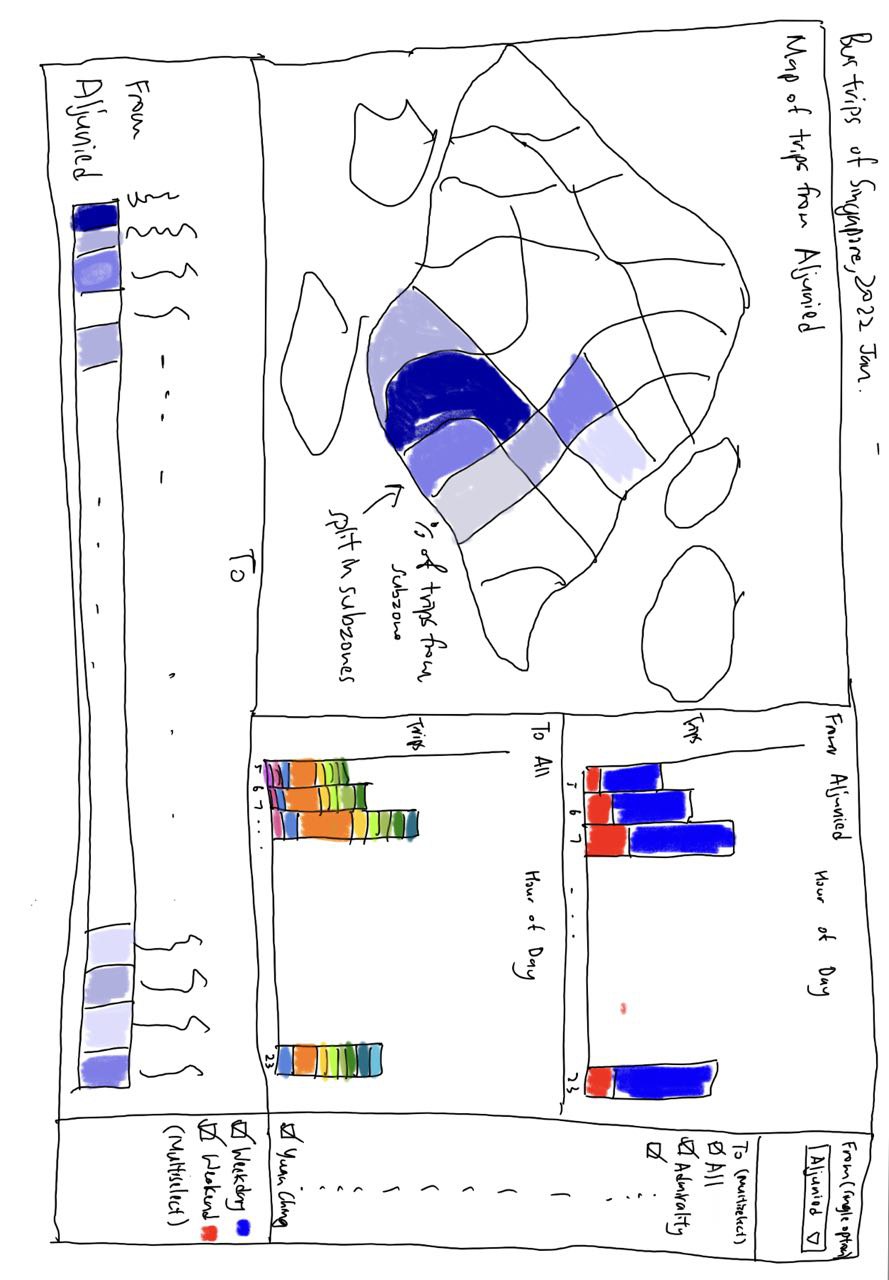 Bus trips of Singapore, 2022 Jan.
Map of trips from Aljunied
% of trips from
subzone
split in subzones
From Aljunied
Hour of Day
Trips
5 6 7 - . . . 23
To All
Hour of Day
Trips
5 6 7 . . . 23
From (single option)
Aljunied
To (Multiselect)
All
Admirality
Yuan Ching
Weekday
Weekend
(Multiselect)
To
From
Aljunied